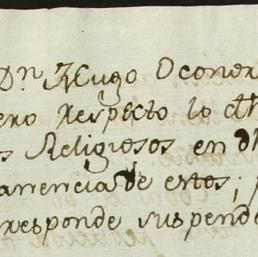 Dn. Hugo Oconor
ero respecto lo dh
s Religiosos en dh
anencia de estos;
rresponde suspende